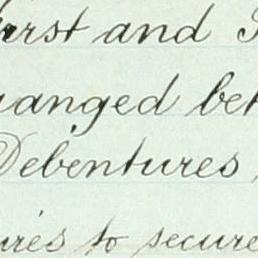 first and
anged bet
Debentures
ures to secure